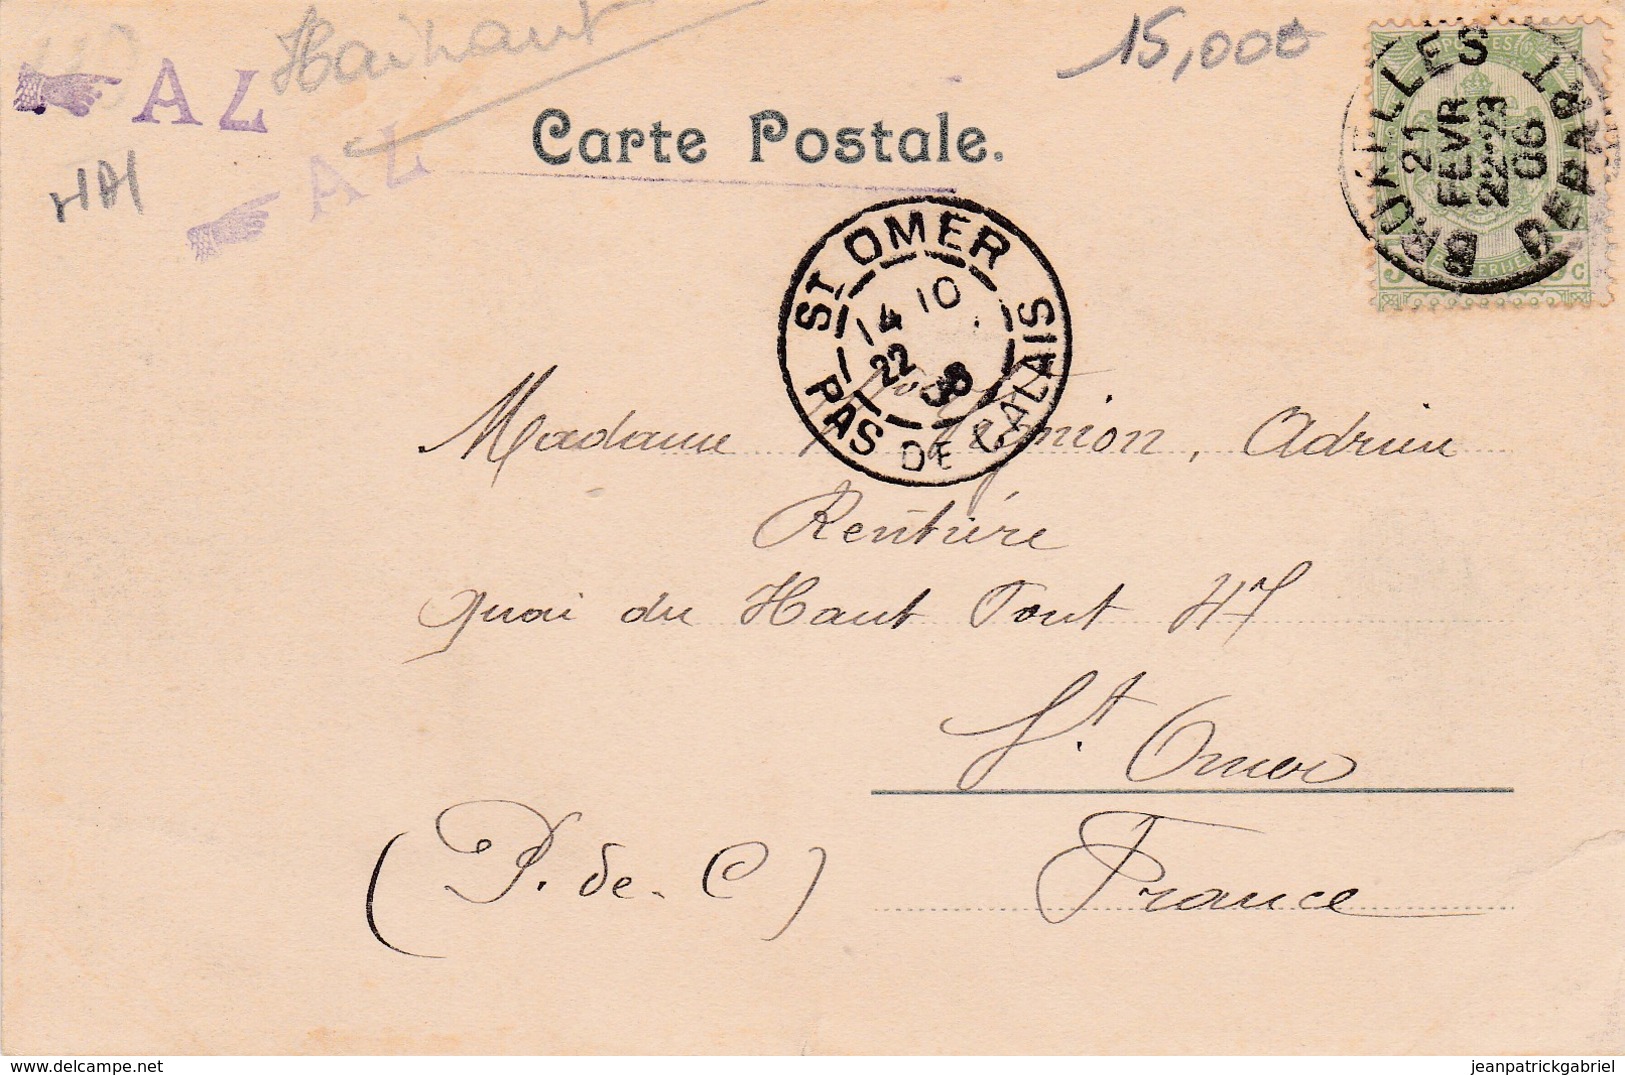 AL
Hainaut
15,000
AL
HAI
Carte Postale.
POSTES
BRUXELLES DÉPART
21
FEVR
22-23
06
5 C
ST OMER
PAS DE CALAIS
14 10
22
Madame Adrien
Rentière
Quai du Haut Pont 47
St. Omer
(P. de. C)
France
delcampe.net
jeanpatrickgabriel